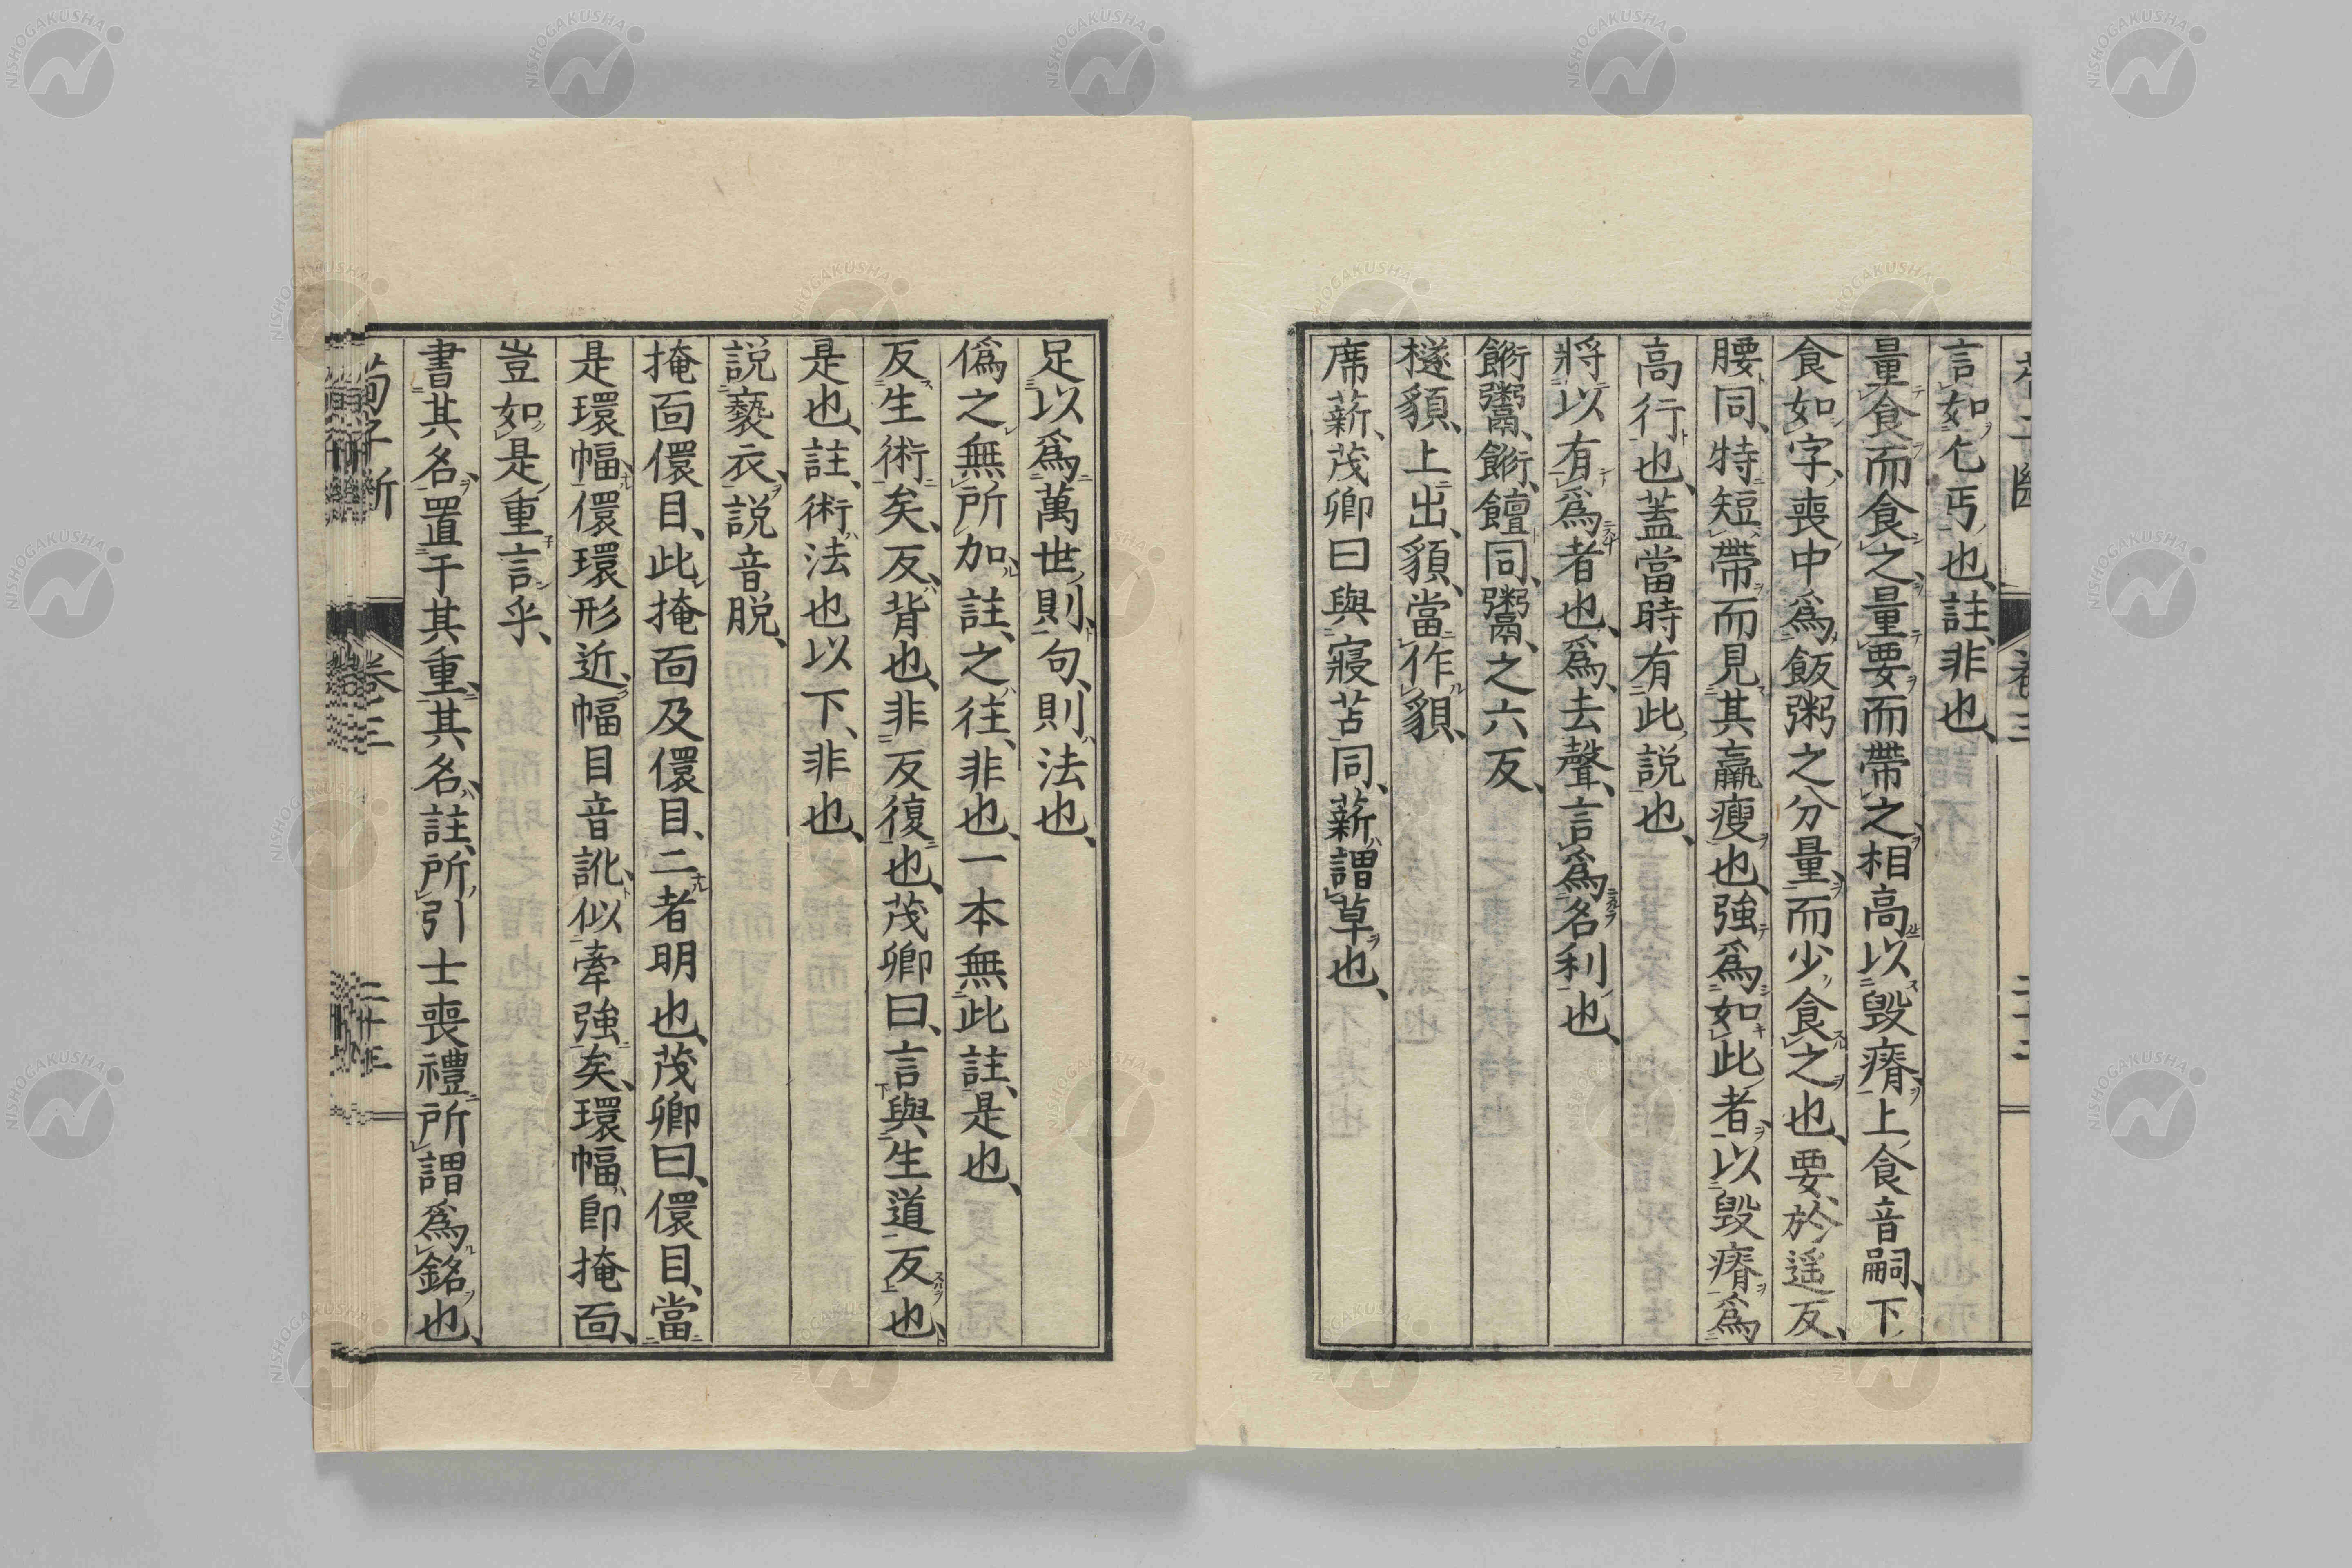 言如乞丐也、註、非也、
量食而食之、量要而帶之、相高以毀瘠、上食音嗣、下
食如字、喪中爲飯粥之分量、而少食之也、要、於遥反、
腰同、特短帶而見其羸瘦也、強爲如此者、以毀瘠爲
高行也、蓋當時有此說也、
將以有爲者也、爲、去聲、言爲名利也、
餰鬻、餰、饘同、鬻、之六反、
檖䫉、上出、䫉、當作貌、
席薪、茂卿曰與寢苫同、薪謂草也、
足以爲萬世則、句、則、法也、
僞之無所加、註、之往、非也、一本無此註、是也、
反生術矣、反、背也、非反復也、茂卿曰、言與生道反也、
是也、註、術、法也以下、非也、
説褻衣、説音脱、
掩面儇目、此掩面及儇目、二者明也、茂卿曰、儇目、當
是環幅、儇環形近、幅目音訛、似牽強矣、環幅、卽掩面、
豈如是重言乎、
書其名、置于其重、其名、註、所引士喪禮所謂爲銘也、
荀子斷
卷三